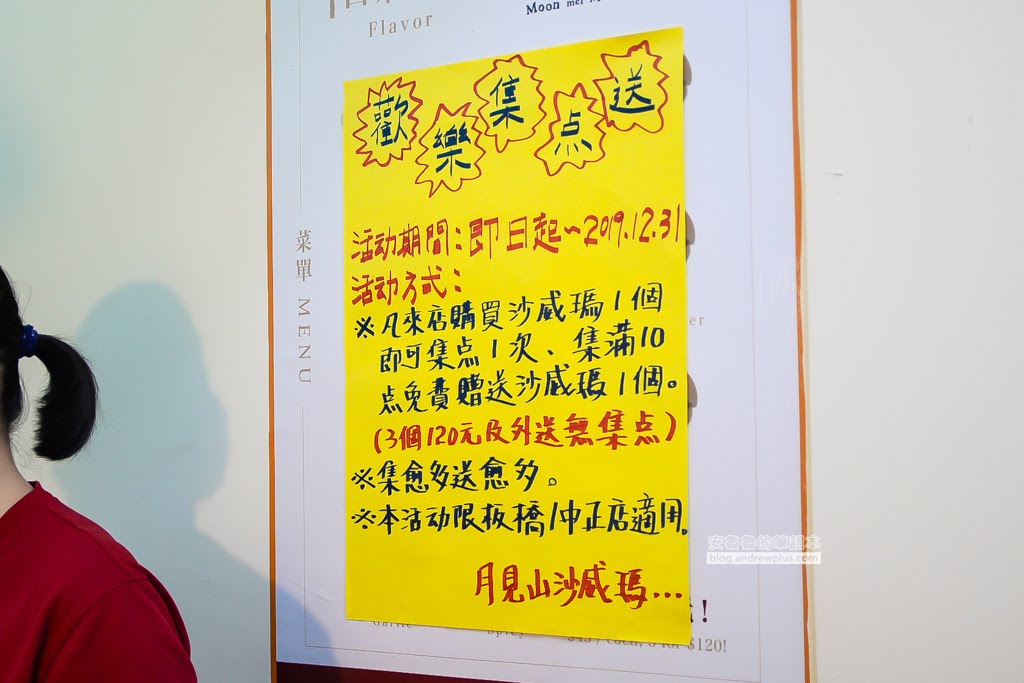 Flavor
Moon
歡樂集点送
活动期間：即日起~2019.12.31
活动方式：
※凡來店購買沙威瑪1個
即可集点1次、集滿10
点免費贈送沙威瑪1個。
(3個120元及外送無集点)
※集愈多送愈多。
※本活动限板橋/中正店適用。
月見山沙威瑪...
菜單 MENU
$120!
安魯魯的筆記本
blog.andrewplus.com